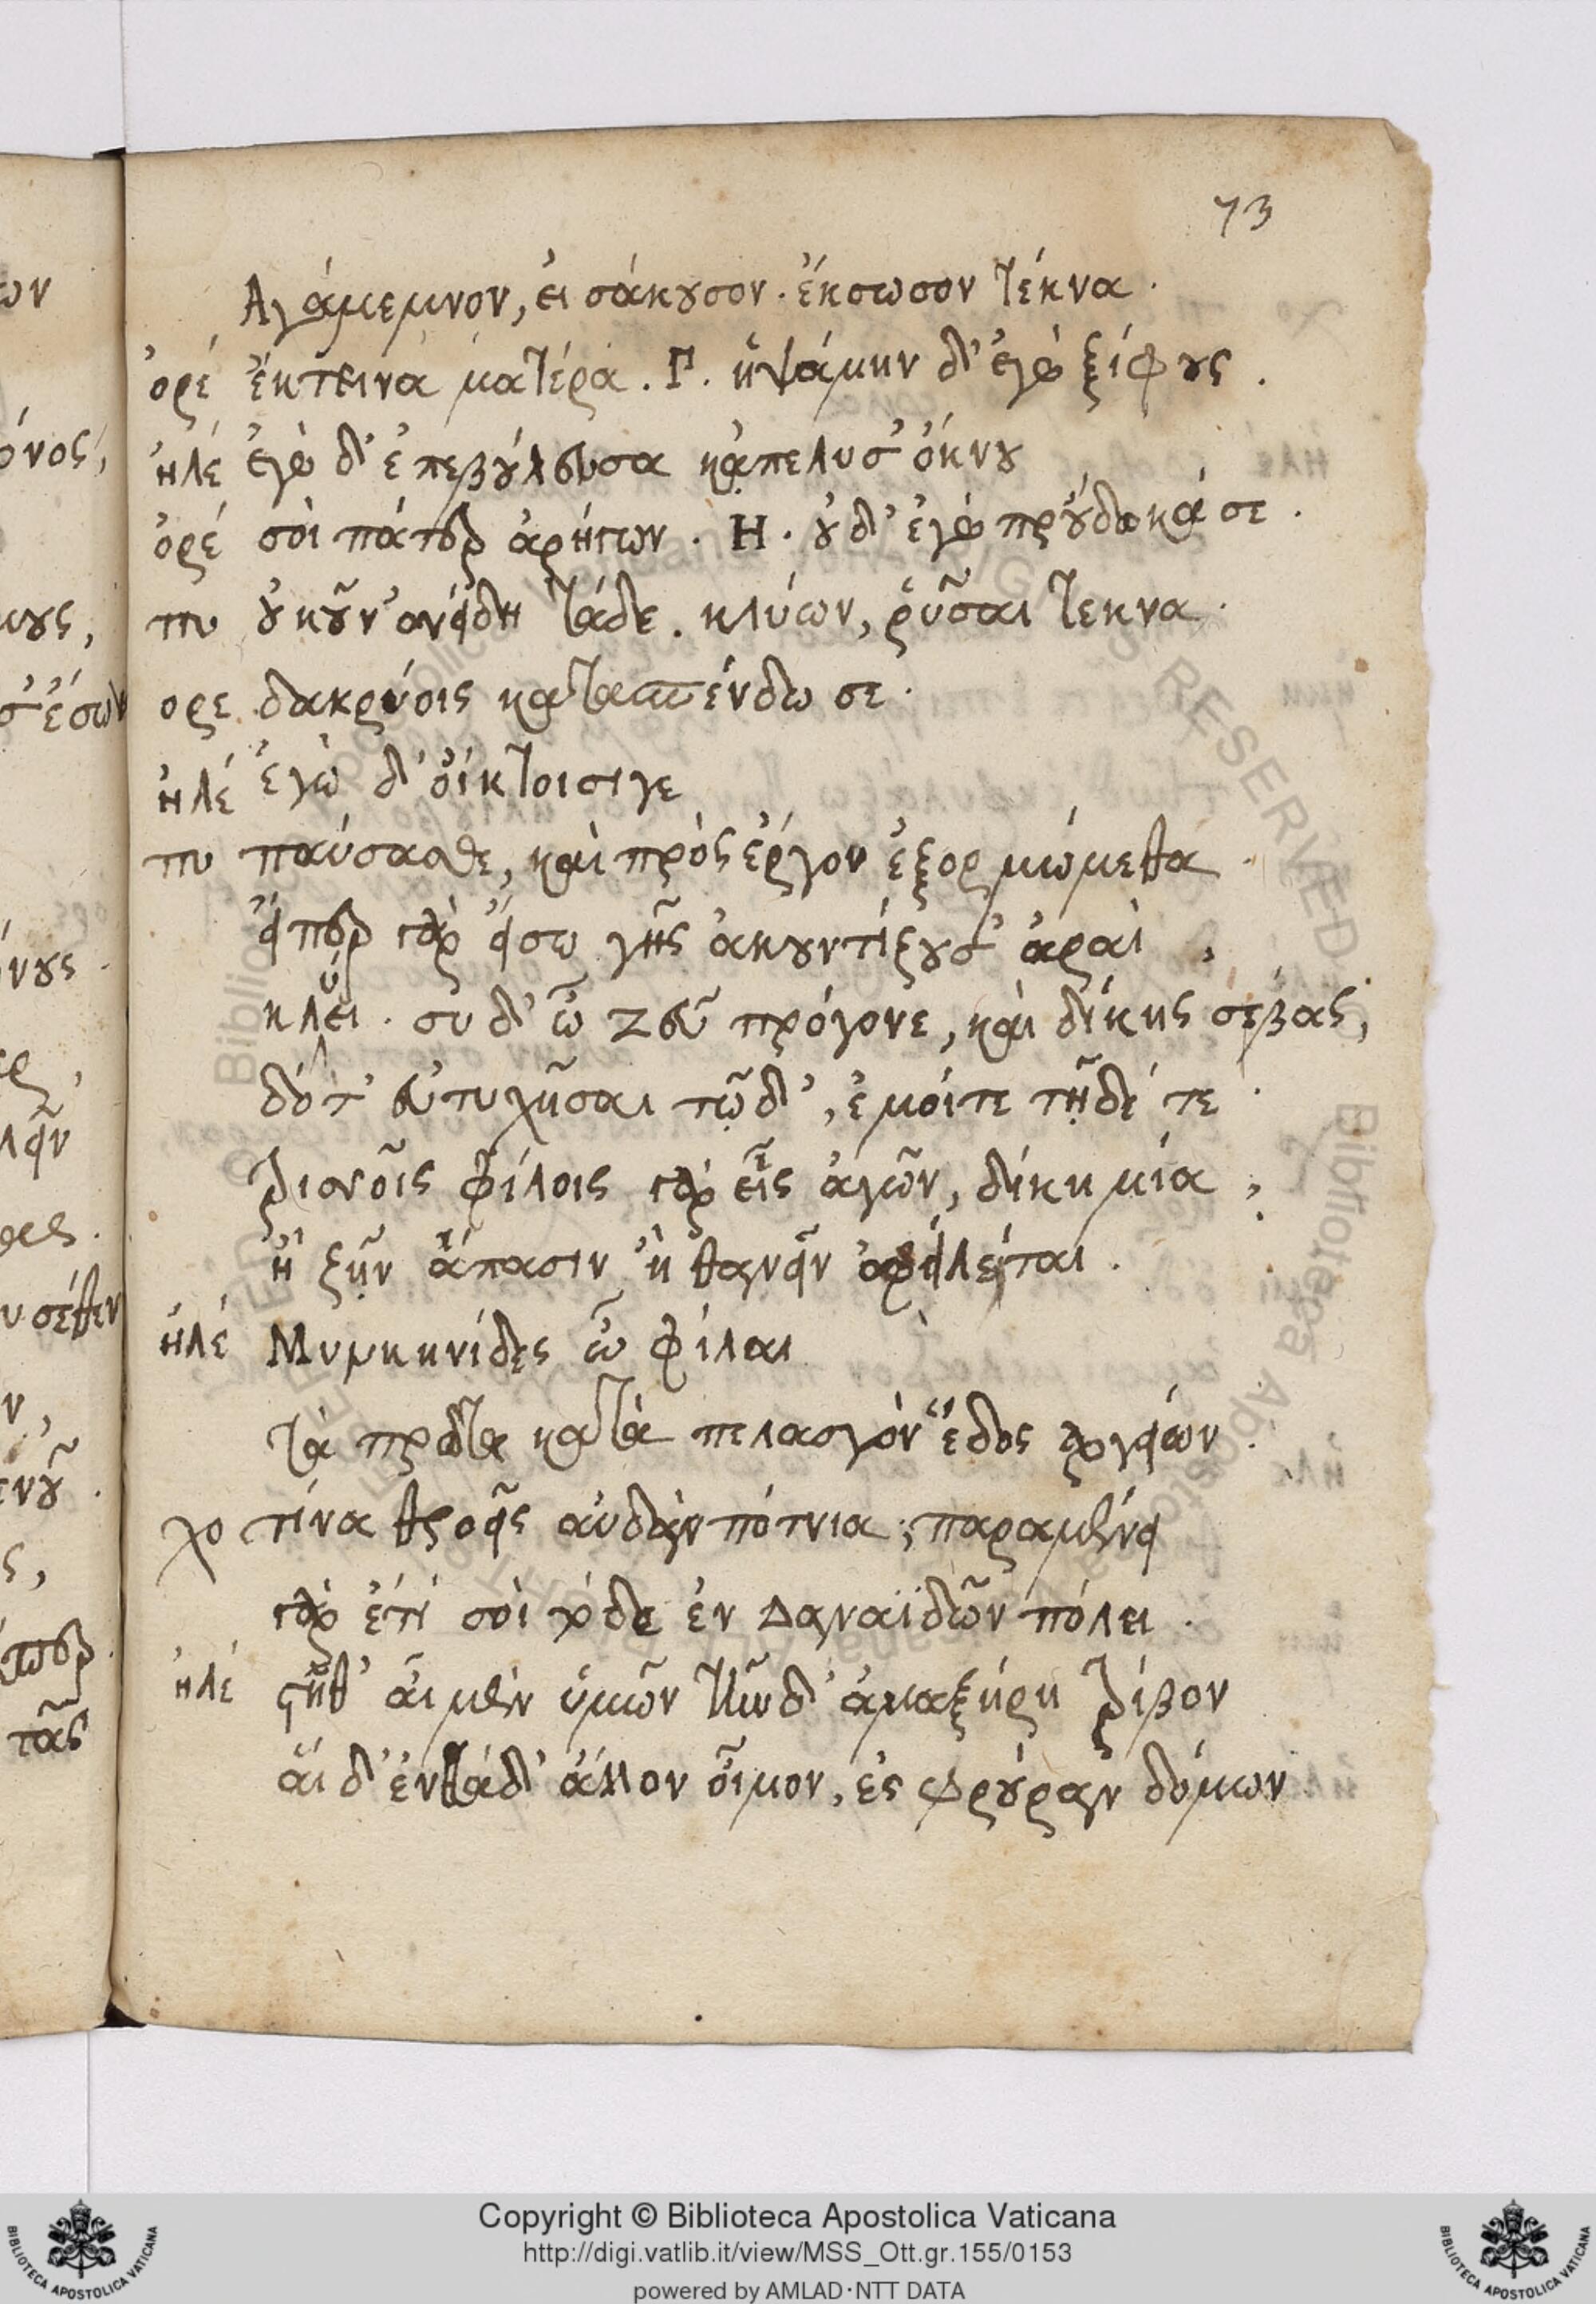 73
Ἀγάμεμνον, εἰσάκουσον. ἔκσωσον τέκνα.
ὀρέ ἔκτεινα ματέρα. Γ. ἡψάμην δ' ἐγὼ ξίφους.
ἠλέ ἐγὼ δ' ἐπεβούλευσα κἀπέλυσ' ὄκνου
ὀρέ σοὶ πάτερ ἀρήγων. Η. οὐδ' ἐγὼ προὔδωκά σε.
πυ οὐκοῦν ὀνείδη τάδε. κλύων, ῥῦσαι τεκνα.
ορε δακρύοις κατασπένδω σε.
ἠλέ ἐγὼ δ' οἴκτοισιγε
πυ παύσασθε, καὶ πρὸς ἔργον ἐξορμώμεθα.
εἴπερ γὰρ εἴσω γῆς ἀκουντίζουσ' ἀραὶ,
κλύει. συ δ' ὦ Ζεῦ πρόγονε, καὶ δίκης σέβας,
δότ' εὐτυχῆσαι τῷδ', ἐμοίτε τῇδέ τε.
τρισσοῖς φίλοις γὰρ εἷς ἀγῶν, δίκη μία,
ἢ ζῆν ἅπασιν ἢ θανεῖν ὀφείλεται.
ἠλέ Μυκηνίδες ὦ φίλαι
τὰ πρῶτα κατὰ πελασγὸν ἕδος ἀργείων.
χο τίνα θροεῖς αὐδὰν πότνια; παραμένει
γὰρ ἔτί σοὶ τόδε ἐν Δαναϊδῶν πόλει.
ἠλέ στῆθ' αἱ μὲν ὑμῶν τῶνδ' ἁμαξήρη τρίβον
αἱ δ' ἐνθάδ' ἄλλον οἶμον, ἐς φρουρὰν δόμων
ων
όνος,
ους,
σ' ἔσων
όνους.
λεῖν
υ σέθεν
ν,
ενοῦ.
ς,
τᾶς
Copyright © Biblioteca Apostolica Vaticana
http://digi.vatlib.it/view/MSS_Ott.gr.155/0153
powered by AMLAD·NTT DATA
BIBLIOTECA APOSTOLICA VATICANA
BIBLIOTECA APOSTOLICA VATICANA